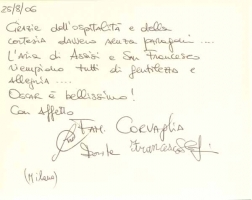 25/8/06
Grazie dell'ospitalità e della
cortesia davvero senza paragoni ....
L'aria di Assisi e San Francesco
riempiono tutti di gentilezza e
allegria ....
Oscar è bellissimo!
Con affetto
Fam. Corvaglia
Francesco
(Milano)